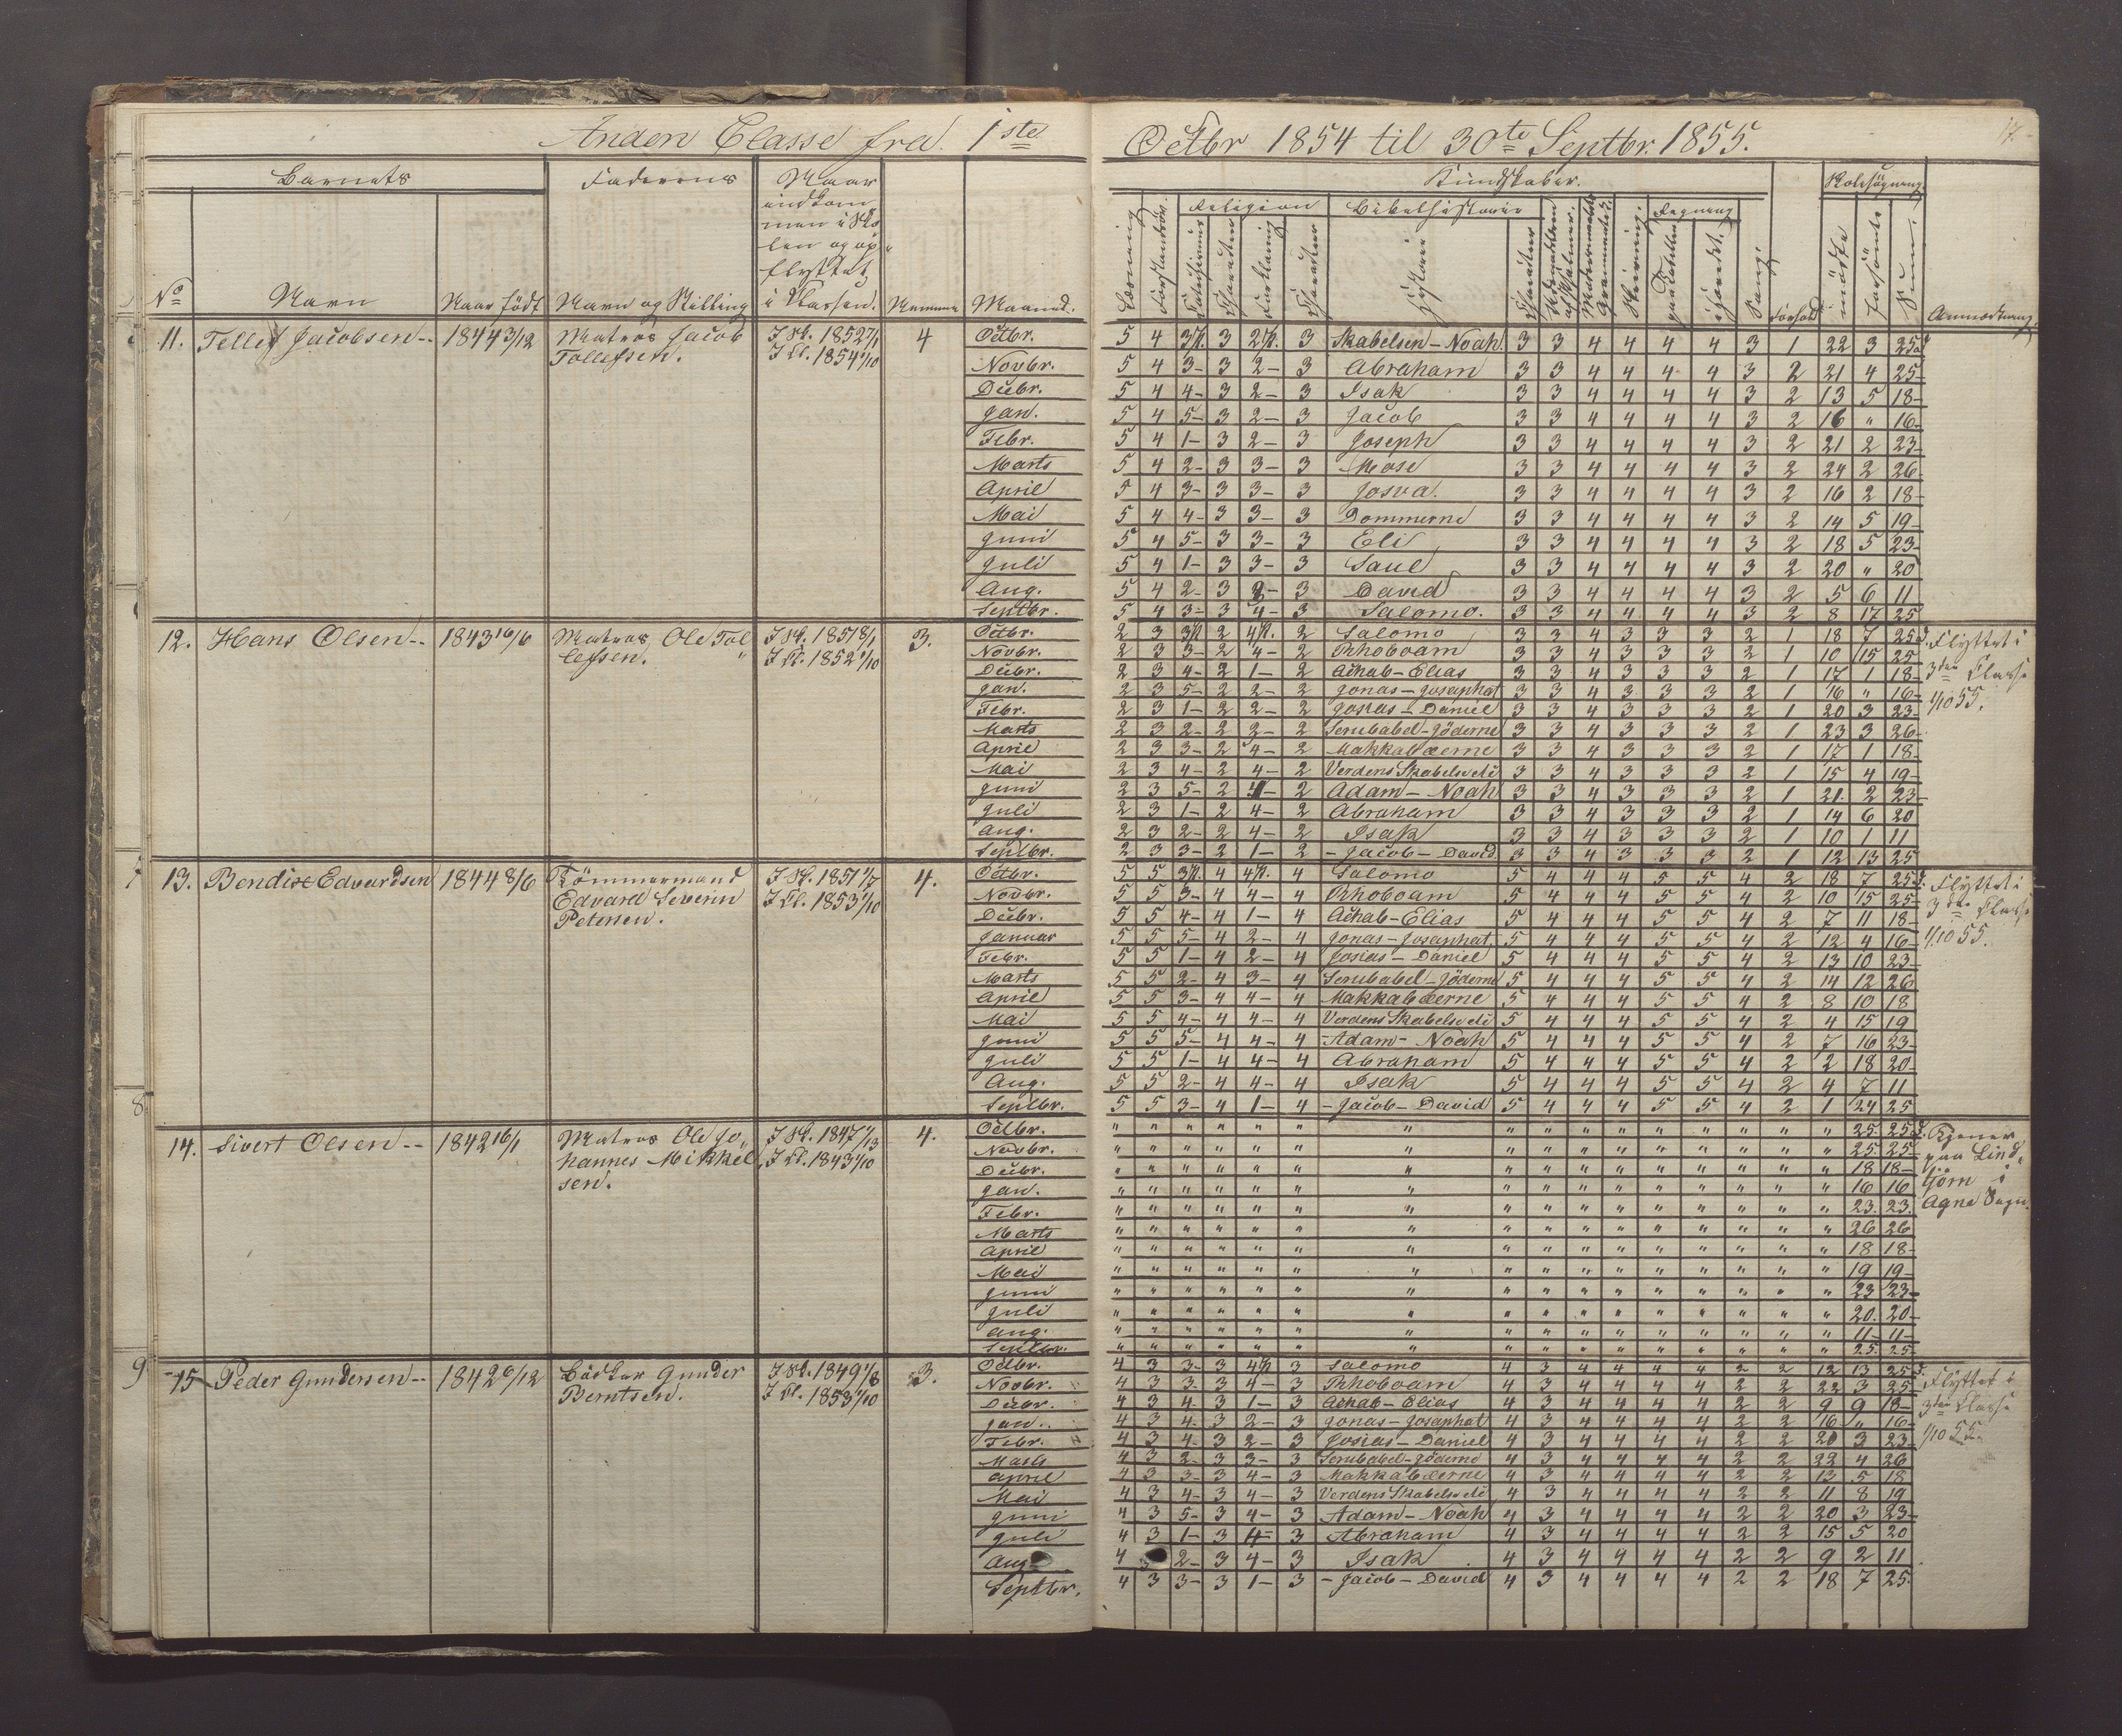 Anden Classe fra 1ste Octbr 1854 til 30te Septbr. 1855.
17.
Barnets
Faderens
Naar indkommen i Skolen og opflyttet i Klassen.
Kundskaber.
Skolesøgning
Religion
Bibelhistorie
Regning
No
Navn
Naar født
Navn og Stilling
Maaned.
Historie
Sang.
Forhold
mødte
forsømte
Sum.
Anmærkning.
11. Tellef Jacobsen-- 1844 3/12 Matros Jacob Tollefsen. I Sk. 1852 7/1 I Kl. 1854 1/10 4
Octbr. 5 4 3 P. 3 2 P. 3 Skabelsen - Noah. 3 3 4 4 4 4 3 1 22 3 25 d
Novbr. 5 4 3- 3 2- 3 Abraham 3 3 4 4 4 4 3 2 21 4 25-
Decbr. 5 4 4- 3 2- 3 Isak 3 3 4 4 4 4 3 2 13 5 18-
Jan. 5 4 5- 3 2- 3 Jacob 3 3 4 4 4 4 3 2 16 " 16-
Febr. 5 4 1- 3 2- 3 Joseph 3 3 4 4 4 4 3 2 21 2 23-
Marts 5 4 2- 3 3- 3 Mose 3 3 4 4 4 4 3 2 24 2 26-
April 5 4 3- 3 3- 3 Josva. 3 3 4 4 4 4 3 2 16 2 18-
Mai 5 4 4- 3 3- 3 Dommerne 3 3 4 4 4 4 3 2 14 5 19-
Juni 5 4 5- 3 3- 3 Eli 3 3 4 4 4 4 3 2 18 5 23-
Juli 5 4 1- 3 3- 3 Saul 3 3 4 4 4 4 3 2 20 " 20
Aug. 5 4 2- 3 - 3 David 3 3 4 4 4 4 3 2 5 6 11
Septbr. 5 4 3- 3 4- 3 Salomo. 3 3 4 4 4 4 3 2 8 17 25
12. Hans Olsen-- 1843 16/6 Matros Ole Tollefsen. I Sk. 1851 8/1 I Kl. 1852 1/10 3.
Octbr. 2 3 3 P. 2 4 P. 2 Salomo 3 3 4 3 3 3 2 1 18 7 25 d. Flyttet i
Novbr. 2 3 3- 2 4- 2 Rhoboam 3 3 4 3 3 3 2 1 10 15 25
Decbr. 2 3 4- 2 1- 2 Achab - Elias 3 3 4 3 3 3 2 1 17 1 18- 3die Classe
Jan. 2 3 5- 2 2- 2 Jonas - Josaphat 3 3 4 3 3 3 2 1 16 " 16-
Febr. 2 3 1- 2 2- 2 Josias - Daniel 3 3 4 3 3 3 2 1 20 3 23- 1/10 55.
Marts 2 3 2- 2 2- 2 Serubabel - Jöderne 3 3 4 3 3 3 2 1 23 3 26-
April 2 3 3- 2 4- 2 Makkabæerne 3 3 4 3 3 3 2 1 17 1 18-
Mai 2 3 4- 2 4- 2 Verdens Skabelse 3 3 4 3 3 3 2 1 15 4 19-
Juni 2 3 5- 2 4- 2 Adam - Noah 3 3 4 3 3 3 2 1 21. 2 23-
Juli 2 3 1- 2 4- 2 Abraham 3 3 4 3 3 3 2 1 14 6 20
Aug. 2 3 2- 2 4- 2 Isak 3 3 4 3 3 3 2 1 10 1 11
Septbr. 2 3 3- 2 1- 2 - Jacob - David 3 3 4 3 3 3 2 1 12 13 25
13. Bendix Edvardsen 1844 8/6 Tömmermand Edvard Severin Petersen. I Sk. 1851 1/7 I Kl. 1853 1/10 4.
Octbr. 5 5 3 P. 4 4 P. 4 Salomo 5 4 4 4 5 5 4 2 18 7 25 d. Flyttet i
Novbr. 5 5 3- 4 4- 4 Rhoboam 5 4 4 4 5 5 4 2 10 15 25- 3die Classe
Decbr. 5 5 4- 4 1- 4 Achab - Elias 5 4 4 4 5 5 4 2 7 11 18-
Januar 5 5 5- 4 2- 4 Jonas - Josaphat. 5 4 4 4 5 5 4 2 12 4 16- 1/10 55.
Febr. 5 5 1- 4 2- 4 Josias - Daniel 5 4 4 4 5 5 4 2 13 10 23-
Marts 5 5 2- 4 3- 4 Serubabel - Jöderne 5 4 4 4 5 5 4 2 14 12 26
April 5 5 3- 4 4- 4 Makkabæerne 5 4 4 4 5 5 4 2 8 10 18
Mai 5 5 4- 4 4- 4 Verdens Skabelse 5 4 4 4 5 5 4 2 4 15 19
Juni 5 5 5- 4 4- 4 - Adam - Noah 5 4 4 4 5 5 4 2 7 16 23-
Juli 5 5 1- 4 4- 4 Abraham 5 4 4 4 5 5 4 2 2 18 20-
Aug. 5 5 2- 4 4- 4 Isak 5 4 4 4 5 5 4 2 4 7 11
Septbr. 5 5 3- 4 1- 4 - Jacob - David 5 4 4 4 5 5 4 2 1 24 25
14. Sivert Olsen-- 1842 16/1 Matros Ole Johannes Mikkelsen. I Sk. 1847 I Kl. 1843 1/10 4.
Octbr. " " " " " " " " " " " " " " " " 25. 25 d. Tjener
Novbr. " " " " " " " " " " " " " " " " 25. 25- paa Lind
Decbr. " " " " " " " " " " " " " " " " 18 18- tjörn i
Jan. " " " " " " " " " " " " " " " " 16 16
Febr. " " " " " " " " " " " " " " " " 23. 23 Agne Sogn.
Marts " " " " " " " " " " " " " " " " 26 26
April " " " " " " " " " " " " " " " " 18 18-
Mai " " " " " " " " " " " " " " " " 19 19-
Juni " " " " " " " " " " " " " " " " 23 23-
Juli " " " " " " " " " " " " " " " " 20. 20-
Aug. " " " " " " " " " " " " " " " " 11- 11-
Septbr. " " " " " " " " " " " " " " " " 25. 25
15 Peder Gundersen-- 1842 6/12 Bödker Gunder Berntsen. I Sk. 1849 1/8 I Kl. 1853 1/10 3.
Octbr. 4 3 3- 3 4 P. 3 Salomo 4 3 4 4 4 4 2 2 12 13 25 d. Flyttet i
Novbr. 4 3 3- 3 4- 3 Rhoboam 4 3 4 4 4 4 2 2 22 3 25
Decbr. 4 3 4- 3 1- 3 Achab - Elias 4 3 4 4 4 4 2 2 9 9 18- 3die Classe
Jan. 4 3 4- 3 2- 3 Jonas - Josaphat 4 3 4 4 4 4 2 2 16 " 16-
Febr. 4 3 4- 3 2- 3 Josias - Daniel 4 3 4 4 4 4 2 2 20 3 23- 1/10 55.
Marts 4 3 2- 3 3- 3 Serubabel - Jöderne 4 3 4 4 4 4 2 2 22 4 26
April 4 3 3- 3 4- 3 Makkabæerne 4 3 4 4 4 4 2 2 13 5 18
Mai 4 3 4- 3 4- 3 Verdens Skabelse 4 3 4 4 4 4 2 2 11 8 19
Juni 4 3 5- 3 4- 3 Adam - Noah 4 3 4 4 4 4 2 2 20 3 23-
Juli 4 3 1- 3 4- 3 Abraham 4 3 4 4 4 4 2 2 15 5 20
Aug. 4 2- 3 4- 3 Isak 4 3 4 4 4 4 2 2 9 2 11
Septbr. 4 3 3- 3 1- 3 - Jacob - David 4 3 4 4 4 4 2 2 18 7 25.
7
8
9